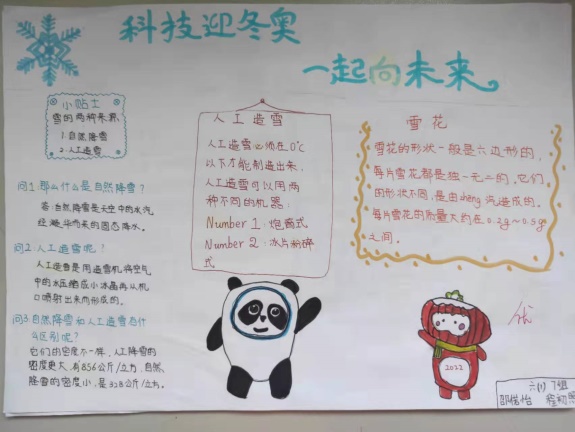 科技迎冬奥
一起向未来。
小贴士
雪的两种来源
1.自然降雪
2.人工造雪
问1:那么什么是自然降雪?
答:自然降雪是天空中的水汽
经凝华而来的固态降水。
问2:人工造雪呢?
人工造雪是用造雪机将空气
中的水压缩成小冰晶再从机
口喷射出来而形成的。
问3:自然降雪和人工造雪为什
么区别呢?
它们的密度不一样,人工降雪的
密度更大,有856公斤/立方,自然
降雪的密度小,是328公斤/立方。
人工造雪
人工造雪必须在0℃
以下才能制造出来,
人工造雪可以用两
种不同的机器:
Number 1:炮筒式
Number 2:冰片粉碎
式
雪花
雪花的形状一般是六边形的,
每片雪花都是独一无二的,它们
的形状不同,是由zhēng汽造成的。
每片雪花的质量大约在0.2g~0.5g
之间。
优
2022
六(1)
邵偌怡